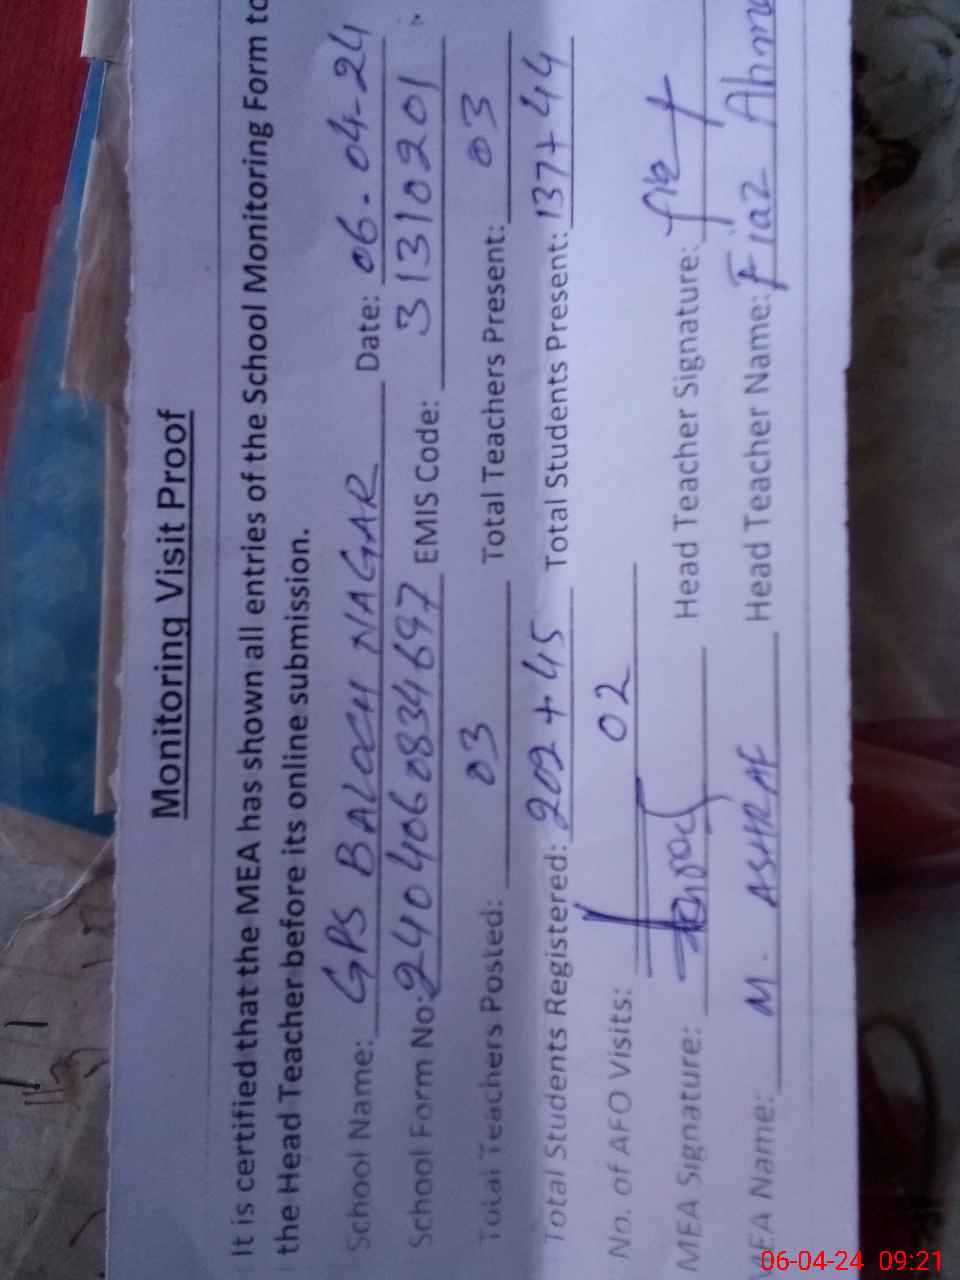 Monitoring Visit Proof
It is certified that the MEA has shown all entries of the School Monitoring Form to
the Head Teacher before its online submission.
School Name: GPS BALOCH NAGAR Date: 06-04-24
School Form No: 240406083469 7 EMIS Code: 31310201
Total Teachers Posted: 03 Total Teachers Present: 03
Total Students Registered: 202 + 45 Total Students Present: 137+44
No. of AFO Visits: 02
MEA Signature: Head Teacher Signature:
MEA Name: M. ASHRAF Head Teacher Name: Fiaz Ahm
06-04-24 09:21